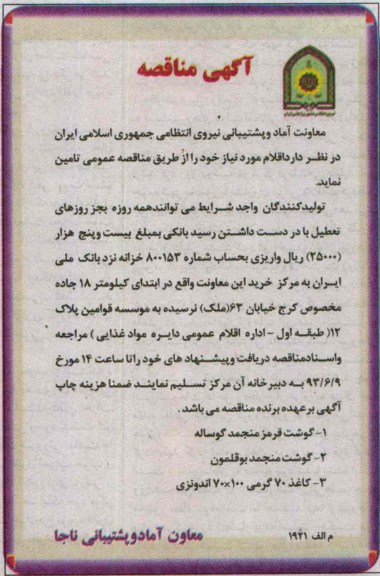 آگهی مناقصه
معاونت آماد وپشتیبانی نیروی انتظامی جمهوری اسلامی ایران
در نظر دارداقلام مورد نیاز خود را از طریق مناقصه عمومی تامین
نماید.
تولیدکنندگان واجد شرایط می توانندهمه روزه بجز روزهای
تعطیل با در دست داشتن رسید بانکی بمبلغ بیست وپنج هزار
(۲۵۰۰۰) ریال واریزی بحساب شماره ۸۰۰۱۵۳ خزانه نزد بانک ملی
ایران به مرکز خرید این معاونت واقع در ابتدای کیلومتر ۱۸ جاده
مخصوص کرج خیابان ۶۳(ملک) نرسیده به موسسه قوامین پلاک
۱۲( طبقه اول - اداره اقلام عمومی دایره مواد غذایی ) مراجعه
واسنادمناقصه دریافت وپیشنهاد های خود را تا ساعت ۱۴ مورخ
۹۳/۶/۹ به دبیرخانه آن مرکز تسلیم نمایند ضمنا هزینه چاپ
آگهی برعهده برنده مناقصه می باشد .
۱- گوشت قرمز منجمد گوساله
۲- گوشت منجمد بوقلمون
۳- کاغذ ۷۰ گرمی ۱۰۰×۷۰ اندونزی
م الف ۱۹۲۱
معاون آمادوپشتیبانی ناجا